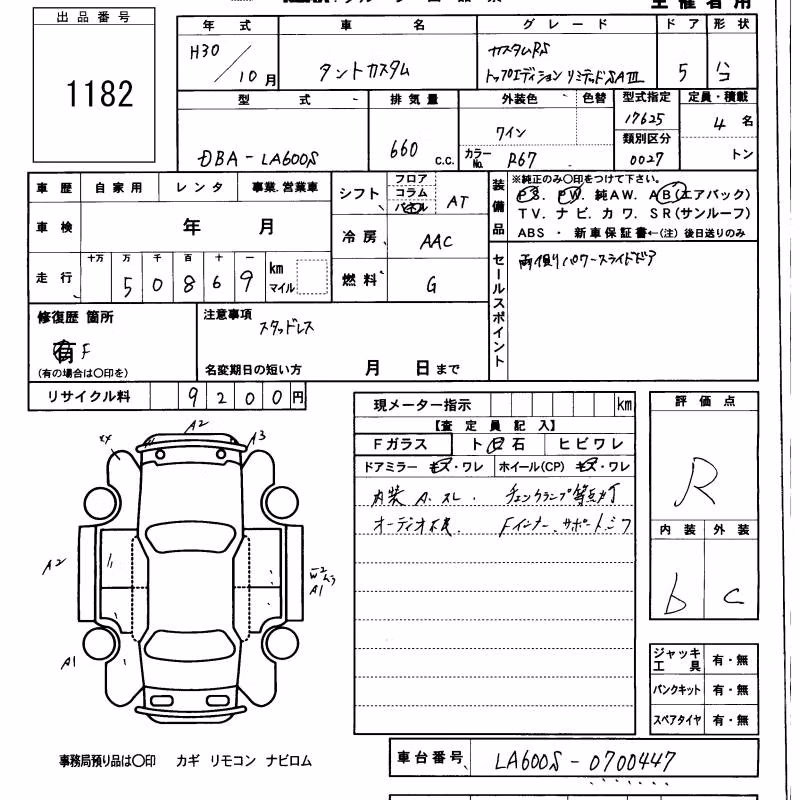 出品番号
1182
年式 車名 グレード ドア 形状
H30/10月 タントカスタム カスタムRS 5
トップエディション リミテッドSAⅢ
型式 排気量 外装色 色替 型式指定 定員・積載
DBA-LA600S 660 c.c. ワイン 17625 4名
カラーNo. R67 類別区分 0027 トン
車歴 自家用 レンタ 事業.営業車
車検 年 月
走行 十万 万 千 百 十 一
50869 km マイル
シフト フロア コラム パネル AT
冷房 AAC
燃料 G
装備品
※純正のみ〇印をつけて下さい。
PS. PW. 純AW. AB(エアバック)
TV. ナビ. カワ. SR(サンルーフ)
ABS・新車保証書←(注)後日送りのみ
セールスポイント
両側パワースライドドア
修復歴 箇所
有 F
(有の場合は〇印を)
注意事項
スタッドレス
名変期日の短い方 月 日まで
リサイクル料 9200円
現メーター指示 km
【査定員記入】
Fガラス ト日石 ヒビワレ
ドアミラー キズ・ワレ ホイール(CP) キズ・ワレ
オーディオ不良. Fインナー、サポートシワ
評価点
R
内装 外装
b c
A2
XX A3
A2
W2
A1
A1
ジャッキ工具 有・無
パンクキット 有・無
スペアタイヤ 有・無
事務局預り品は〇印 カギ リモコン ナビロム
車台番号 LA600S-0700447